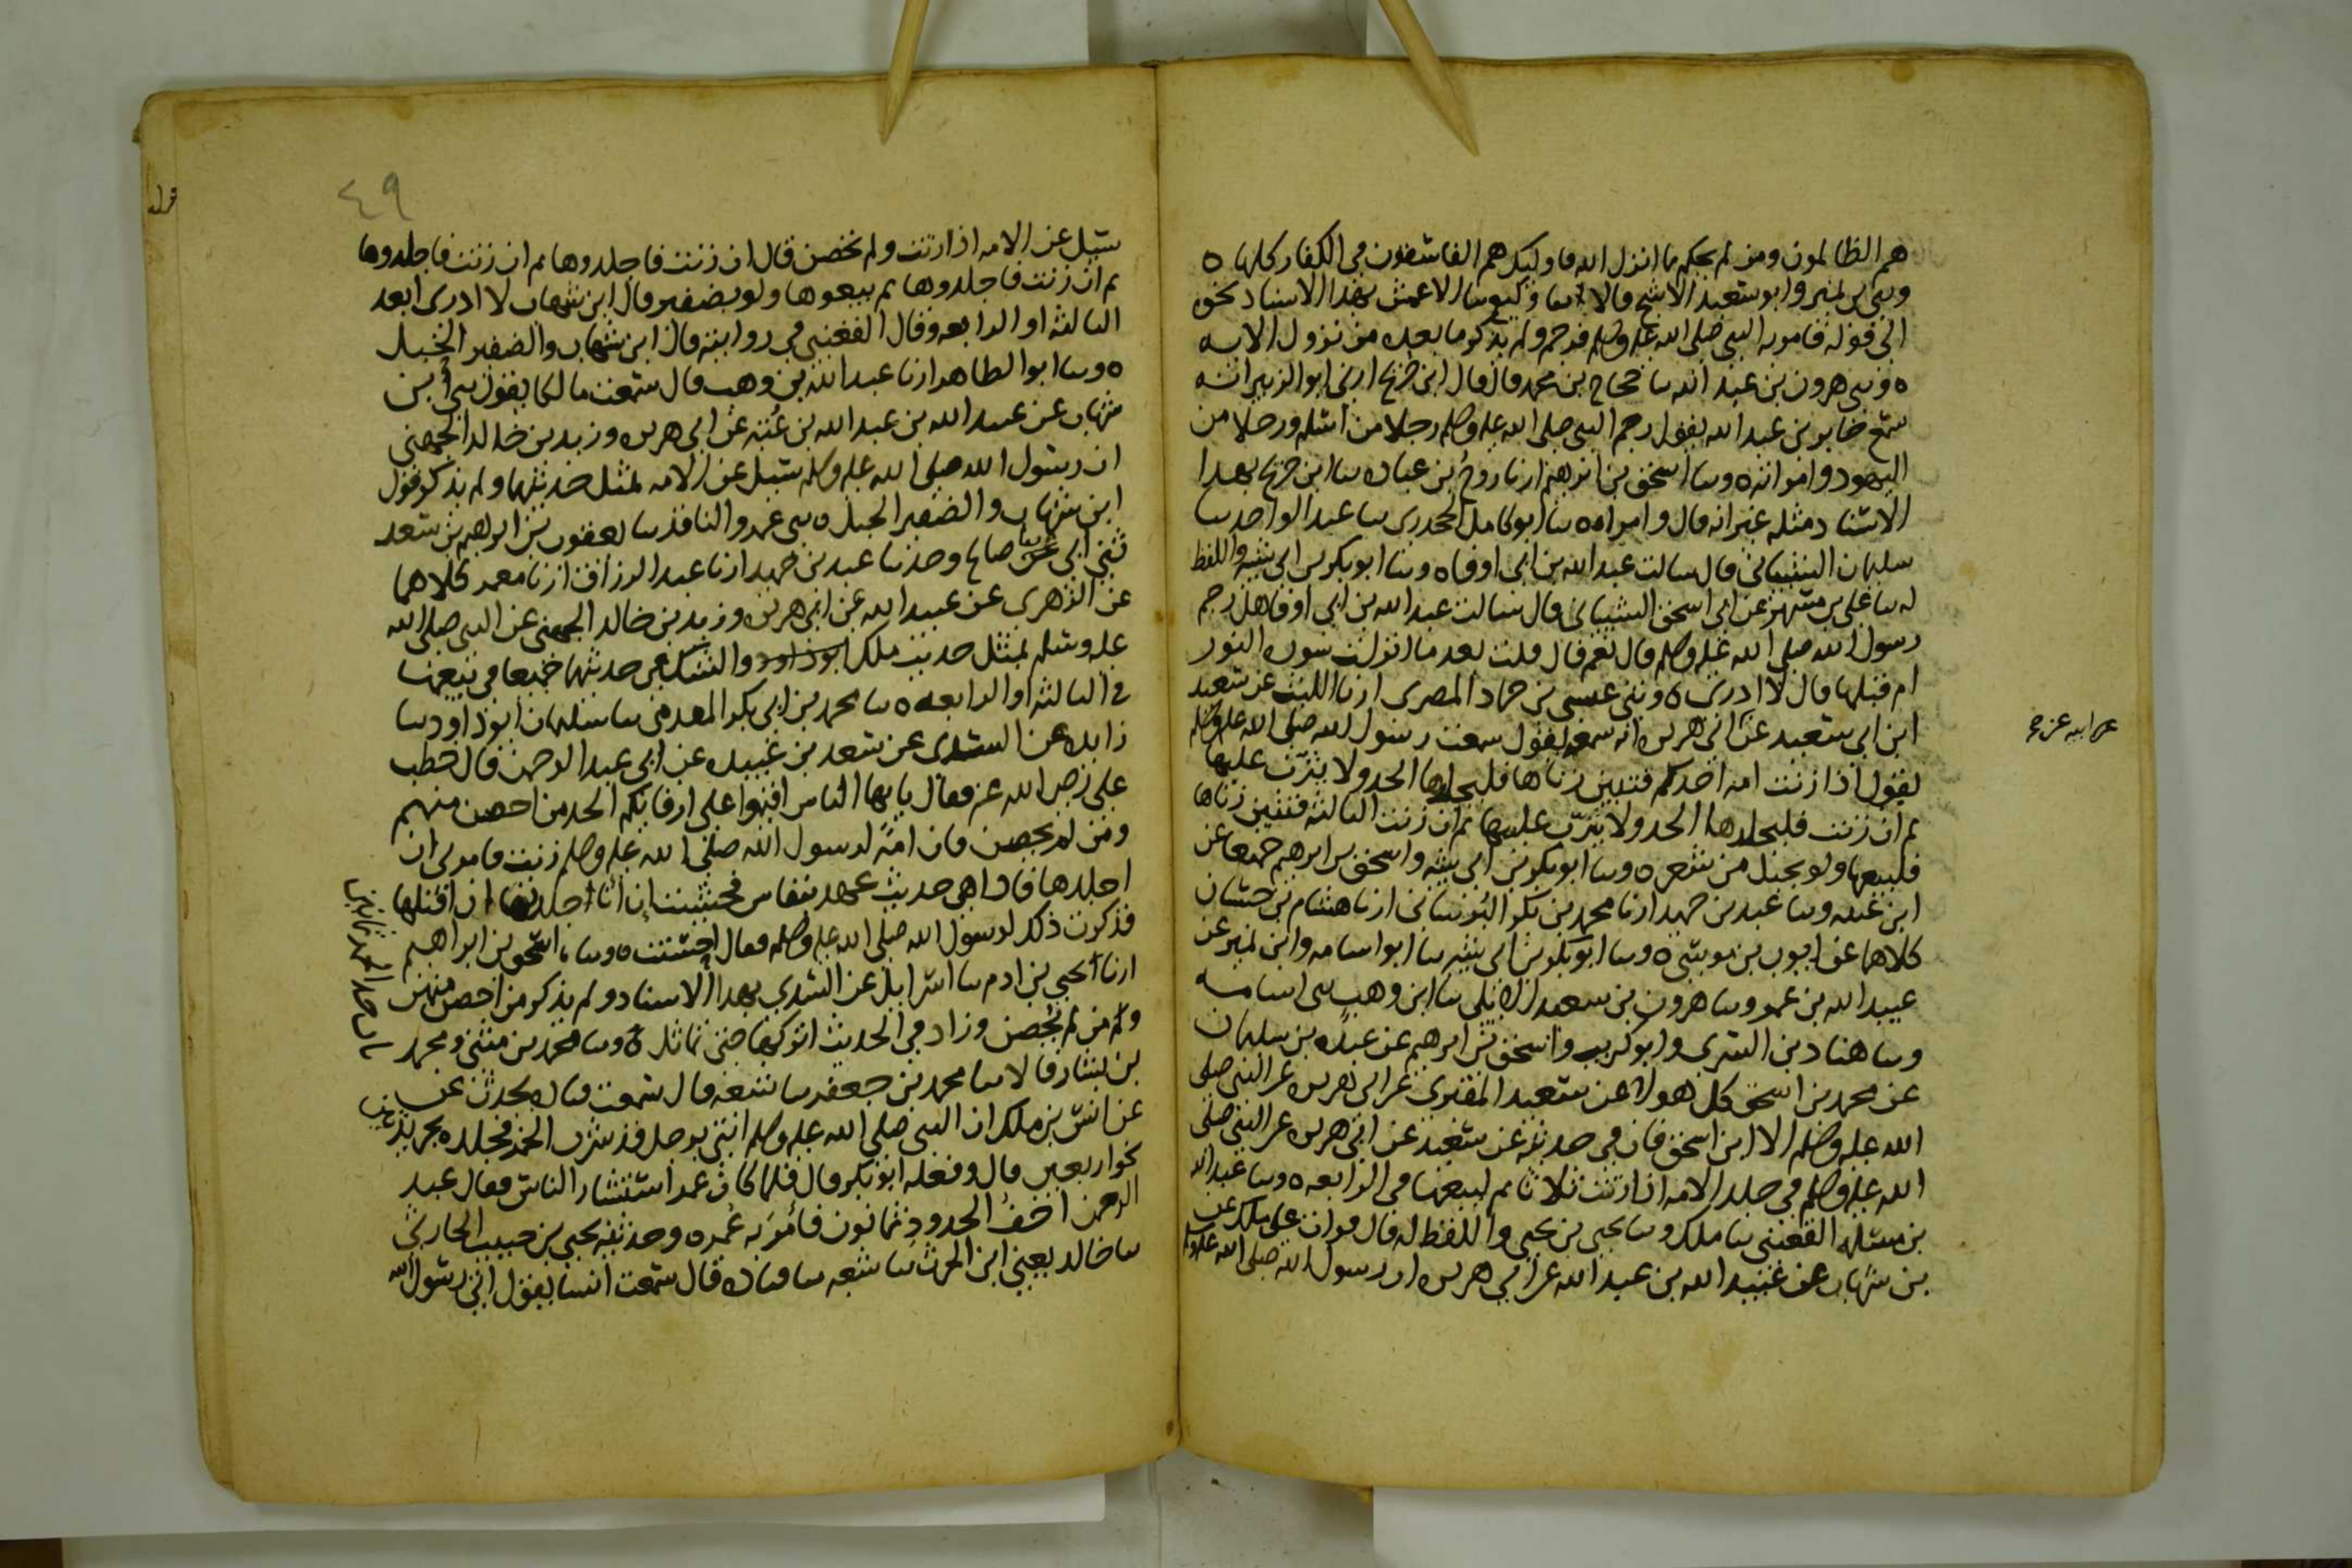 هم الظالمون ومن لم يحكم بما انزل الله فاوليك هم الفاسقون في الكفار كلها ه
وثنى بن نمير وابو سعيد الاشج قالا ثنا وكيع ثنا الاعمش بهذا الاسناد نحوه
الى قوله فامر به النبي صلى الله عليه وسلم فرجم ولم يذكر ما بعده من نزول الايه
ه وثنى هرون بن عبد الله ثنا حجاج بن محمد قال قال ابن جريج ارنى ابو الزبير انه
سمع جابر بن عبد الله يقول رجم النبي صلى الله عليه وسلم رجلا من اسلم ورجلا من
اليهود وامراته ه وثنا اسحق بن ابرهيم ارنا روح بن عباده ثنا ابن جريج بهذا
الاسناد مثله غير انه قال وامراه ه ثنا ابو كامل الجحدرى ثنا عبد الواحد ثنا
سليمان الشيباني قال سالت عبد الله بن ابي اوفا ه وثنا ابو بكر بن ابي شيبه واللفظ
له ثنا على بن مسهر عن ابي اسحق الشيباني قال سالت عبد الله بن ابي اوفا هل رجم
رسول الله صلى الله عليه وسلم قال نعم قال قلت بعد ما انزلت سوره النور
ام قبلها قال لا ادرى ه وثنى عيسى بن حماد المصرى ارنا الليث عن سعيد
ابن ابي سعيد عن ابي هريره انه سمعه يقول سمعت رسول الله صلى الله عليه وسلم
عن ابيه عن صح
يقول اذا زنت امه احدكم فتبين زناها فليجلدها الحد ولا يثرب عليها
ثم ان زنت فليجلدها الحد ولا يثرب عليها ثم ان زنت الثالثه فتبين زناها
فليبعها ولو بحبل من شعر ه وثنا ابو بكر بن ابي شيبه واسحق بن ابرهيم جميعا عن
ابن عيينه وثنا عبد بن حميد ارنا محمد بن بكر البرساني ارنا هشام بن حسان
كلاهما عن ايوب بن موسى ه وثنا ابو بكر بن ابي شيبه ثنا ابو اسامه وابن نمير عن
عبيد الله بن عمر وثنا هرون بن سعيد الايلي ثنا ابن وهب ثنى اسامه
وثنا هناد بن السري وابو كريب واسحق بن ابرهيم عن عبده بن سليمان
عن محمد بن اسحق كل هولا عن سعيد المقبري عن ابي هريره عن النبي صلى
الله عليه وسلم الا ابن اسحق قال في حديثه عن سعيد عن ابيه عن ابي هريره عن النبي صلى
الله عليه وسلم في جلد الامه اذا زنت ثلاثا ثم ليبعها في الرابعه ه وثنا عبد الله
بن مسلمه القعنبي ثنا ملك وثنا يحيى بن يحيى واللفظ له قال قرات على ملك عن
بن شهاب عن عبيد الله بن عبد الله عن ابي هريره ان رسول الله صلى الله عليه وسلم
٤٩
سيل عن الامه اذا زنت ولم تحصن قال ان زنت فاجلدوها ثم ان زنت فاجلدوها
ثم ان زنت فاجلدوها ثم بيعوها ولو بضفير قال ابن شهاب لا ادرى ابعد
الثالثه او الرابعه وقال القعنبي في روايته قال ابن شهاب والضفير الحبل
ه وثنا ابو الطاهر ارنا عبد الله بن وهب قال سمعت مالكا يقول ثنى ابن
شهاب عن عبيد الله بن عبد الله بن عتبه عن ابي هريره وزيد بن خالد الجهني
ان رسول الله صلى الله عليه وسلم سيل عن الامه بمثل حديثهما ولم يذكر قول
ابن شهاب والضفير الحبل ه ثنى عمرو الناقد ثنا يعقوب بن ابرهيم بن سعد
ثنى ابي عن صالح وحدثنا عبد بن حميد ارنا عبد الرزاق ارنا معمر كلاهما
عن الزهرى عن عبيد الله عن ابي هريره وزيد بن خالد الجهني عن النبي صلى الله
عليه وسلم بمثل حديث ملك ابو داود والشك في حديثهما جميعا في بيعها
في الثالثه او الرابعه ه ثنا محمد بن ابي بكر المقدمى ثنا سليمان ابو داود ثنا
زايده عن السدى عن سعد بن عبيده عن ابي عبد الرحمن قال خطب
على رضى الله عنه فقال يايها الناس اقيموا على ارقايكم الحد من احصن منهم
ومن لم يحصن فان امة لرسول الله صلى الله عليه وسلم زنت فامرنى ان
اجلدها فاذا هي حديث عهد بنفاس فخشيت ان انا جلدتها ان اقتلها
فذكرت ذلك لرسول الله صلى الله عليه وسلم فقال احسنت ه وثنا اسحق بن ابراهيم
ارنا يحيى بن ادم ثنا اسرايل عن السدي بهذا الاسناد ولم يذكر من احصن منهم
ومن لم يحصن وزاد في الحديث اتركها حتى تماثل ه وثنا محمد بن مثنى ومحمد
بن بشار قالا ثنا محمد بن جعفر ثنا شعبه قال سمعت قتاده يحدث عن
عن انس بن ملك ان النبي صلى الله عليه وسلم اتي برجل قد شرب الخمر فجلده بجريدتين
نحو اربعين قال وفعله ابو بكر قال فلما كان عمر استشار الناس فقال عبد
الرحمن اخف الحدود ثمانون فامر به عمر ه وحدثنيه يحيى بن حبيب الحارثي
ثنا خالد يعني ابن الحرث ثنا شعبه ثنا قتاده قال سمعت انسا يقول اتي رسول الله